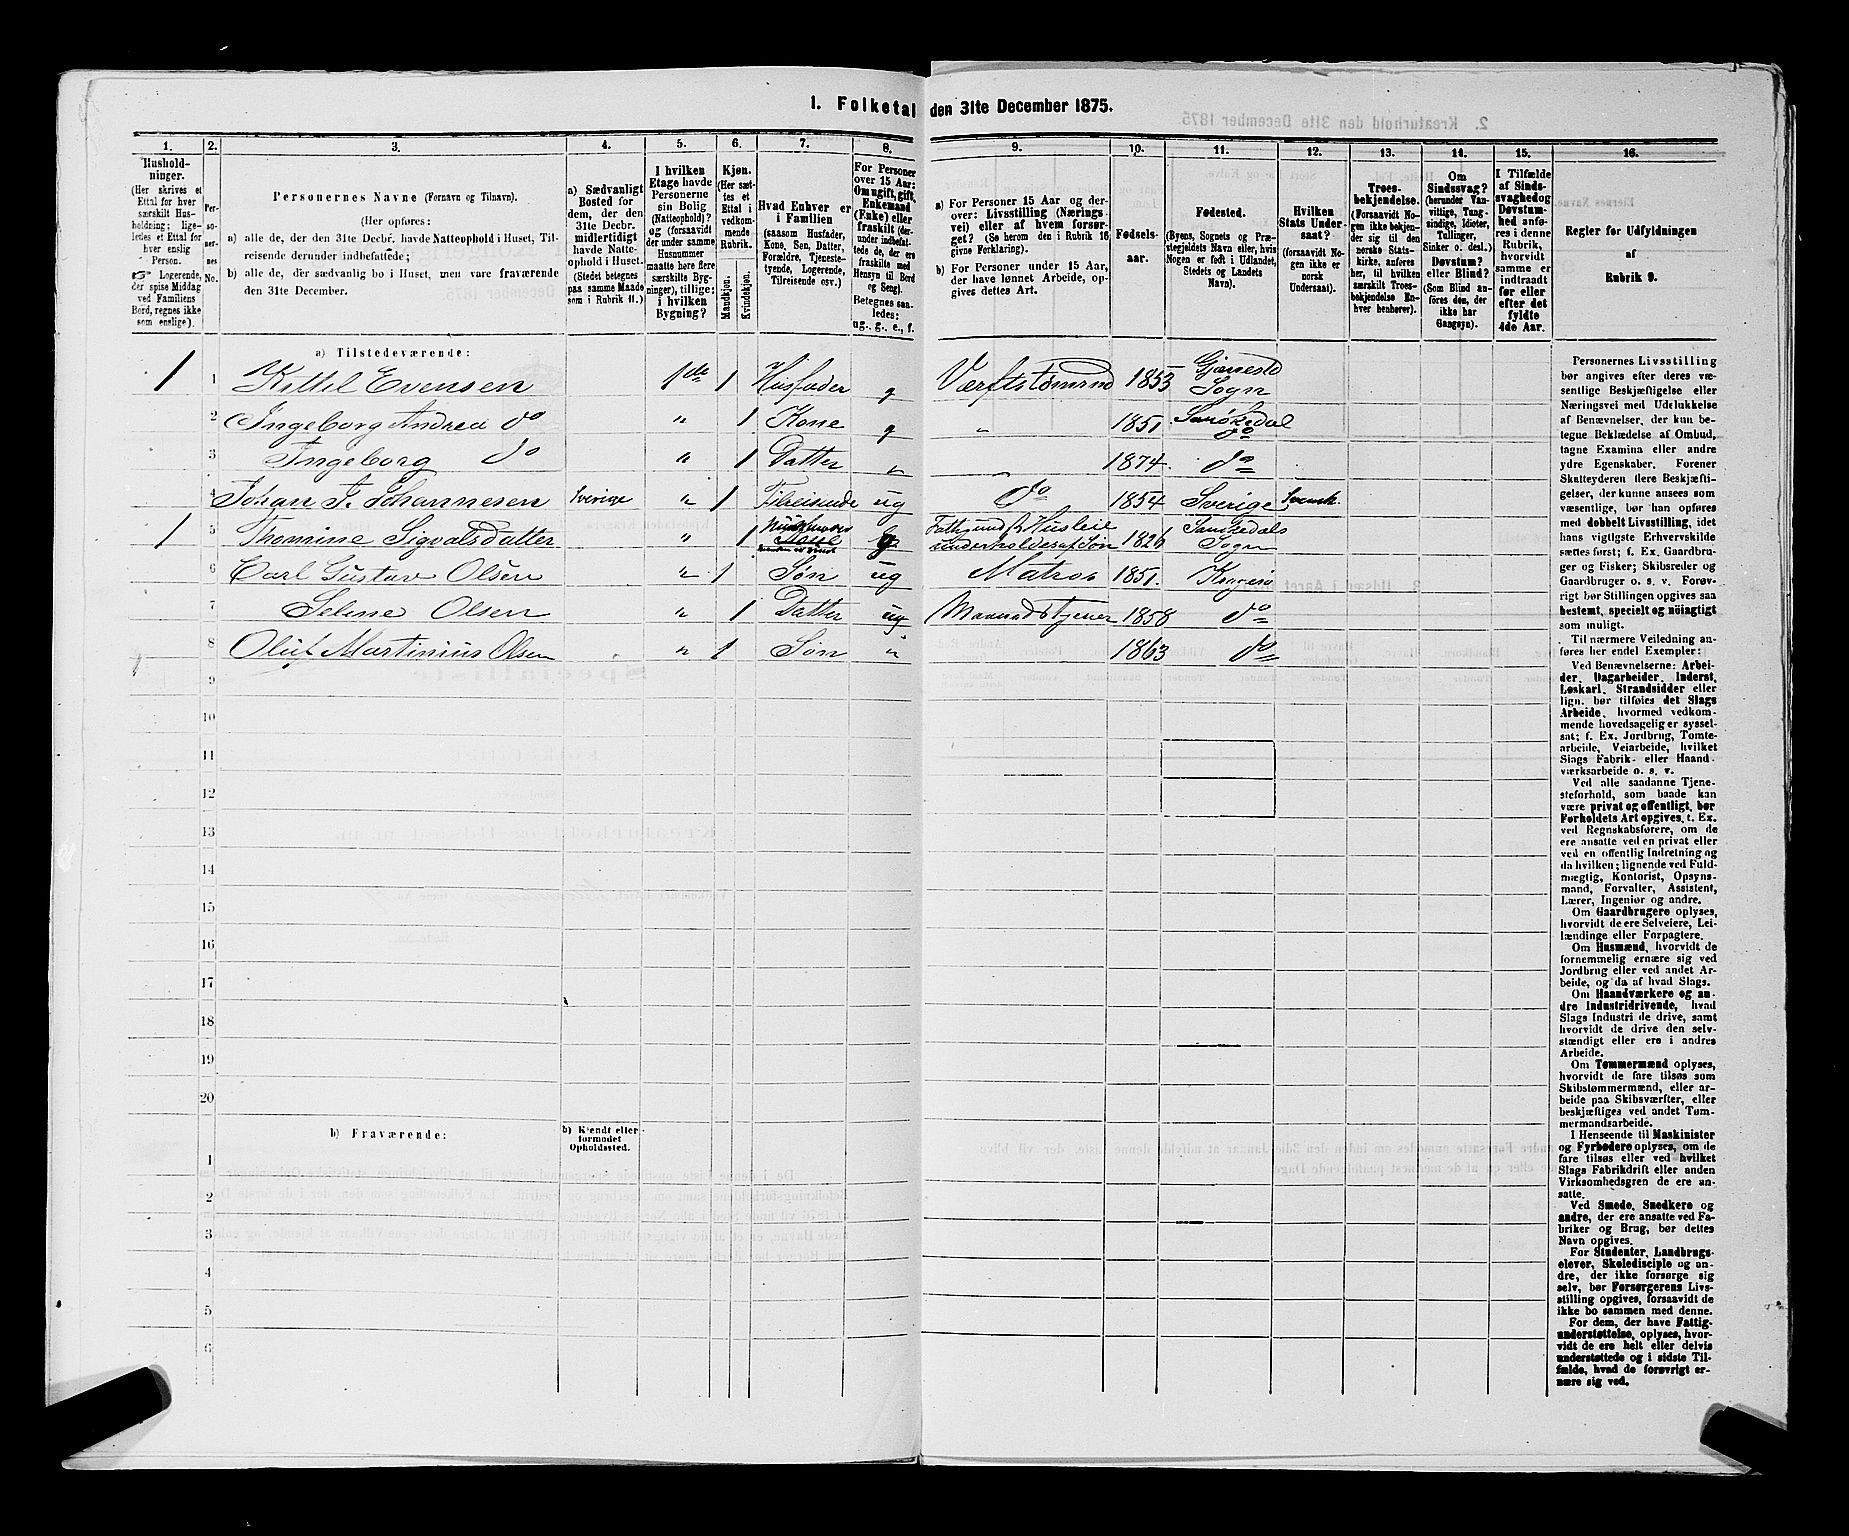 1. Folketal den 31te December 1875.
1. 2. 3. 4. 5. 6. 7. 8. 9. 10. 11. 12. 13. 14. 15. 16.
Husholdninger.
(Her skrives et
Ettal for hver
særskilt Husholdning;
ligeledes et Ettal for
hver enslig
Person.
☞ Logerende,
der spise Middag
ved Familiens
Bord, regnes ikke
som enslige).
Personernes No.
Personernes Navne (Fornavn og Tilnavn).
(Her opføres:
a) alle de, der den 31te Decbr. havde Natteophold i Huset, Tilreisende derunder indbefattede;
b) alle de, der sædvanlig bo i Huset, men vare fraværende
den 31te December.
a) Sædvanligt
Bosted for
dem, der den
31te Decbr.
midlertidigt
havde Natteophold i Huset.
(Stedet betegnes
paa samme Maade
som i Rubrik 11.)
I hvilken
Etage havde
Personerne
sin Bolig
(Natteophold)?
og (forsaavidt
der under samme
Husnummer
maatte høre flere
særskilte Bygninger), tillige:
i hvilken
Bygning?
Kjøn.
(Her sættes et
Ettal i
vedkommende
Rubrik.
Mandkjøn.
Kvindekjøn.
Hvad Enhver er
i Familien
(saasom Husfader,
Kone, Søn, Datter,
Forældre, Tjenestetyende, Logerende,
Tilreisende osv.)
For Personer
over 15 Aar:
Om ugift, gift,
Enkemand
(Enke) eller
fraskilt (derunder indbefattede de, der ere
fraskilte med
Hensyn til Bord
og Seng).
Betegnes saaledes:
ug., g., e., f.
a) For Personer 15 Aar og derover: Livsstilling (Næringsvei) eller af hvem forsørget? (Se herom den i Rubrik 16
givne Forklaring).
b) For Personer under 15 Aar,
der have lønnet Arbeide, opgives dettes Art.
Fødselsaar.
Fødested.
(Byens, Sognets og Præstegjeldets Navn eller, hvis
Nogen er født i Udlandet,
Stedets og Landets
Navn).
Hvilken
Stats Undersaat?
(forsaavidt Nogen ikke er
norsk
Undersaat).
Troesbekjendelse.
(Forsaavidt Nogen ikke bekjender sig til den
norske Statskirke, anføres
her, til hvilken
særskilt Troesbekjendelse Enhver henhører).
Om
Sindssvag?
(herunder Vanvittige, Tungsindige, Idioter,
Tullinger,
Sinker o. desl.)
Døvstum?
eller Blind?
(Som Blind anføres den, der
ikke har
Gangsyn).
I Tilfælde
af Sindssvaghed og
Døvstumhed anføres i denne
Rubrik,
hvorvidt
samme er
indtraadt
før eller
efter det
fyldte
4de Aar.
Regler for Udfyldningen
af
Rubrik 9.
a) Tilstedeværende:
1 1 Kittel Evensen 1ste 1 Husfader g Værftstømmd 1853 Sogn
2 Ingeborg Andrea do " 1 Kone g " 1851 do
3 Ingeborg do " 1 Datter " 1874 do
4 Johan F. Johannesen Sverige " 1 Tilreisende ug do 1854 Sverige Svensk
1 5 Thomine Sigvalsdatter " 1 Kone g Husleie underholdes af Søn 1826 Sannikedals Sogn
6 Carl Gustav Olsen " 1 Søn ug Matros 1851 Kragerø
7 Seline Olsen " 1 Datter ug 1858 do
8 Oluf Martinius Olsen " 1 Søn " 1863 do
9
10
11
12
13
14
15
16
17
18
19
20
b) Fraværende:
b) Kjendt eller
formodet
Opholdssted.
1
2
3
4
5
6
Personernes Livsstilling
bør angives efter deres væsentlige Beskjæftigelse eller
Næringsvei med Udelukkelse
af Benævnelser, der kun betegne Beklædelse af Ombud,
tagne Examina eller andre
ydre Egenskaber. Forener
Skatteyderen flere Beskjæftigelser, der kunne ansees som
væsentlige, bør han opføres
med dobbelt Livsstilling, idet
hans vigtigste Erhvervskilde
sættes først; f. Ex. Gaardbruger og Fisker; Skibsreder og
Gaardbruger o. s. v. Forøvrigt bør Stillingen opgives saa
bestemt, specielt og nøiagtigt
som muligt.
Til nærmere Veiledning anføres her endel Exempler:
Ved Benævnelserne: Arbeider, Dagarbeider, Inderst,
Løskarl, Strandsidder eller
lign. bør tilføies det Slags
Arbeide, hvormed vedkommende hovedsagelig er sysselsat; f. Ex. Jordbrug, Tomtearbeide, Veiarbeide, hvilket
Slags Fabrik- eller Haandværksarbeide o. s. v.
Ved alle saadanne Tjenesteforhold, som baade kan
være privat og offentligt, bør
Forholdets Art opgives, t. Ex.
ved Regnskabsførere, om de
ere ansatte ved en privat eller
ved en offentlig Indretning og
da hvilken; lignende ved Fuldmægtig, Kontorist, Opsynsmand, Forvalter, Assistent,
Lærer, Ingeniør og andre.
Om Gaardbrugere oplyses,
hvorvidt de ere Selveiere, Leilændinge eller Forpagtere.
Om Husmænd, hvorvidt de
fornemmelig ernære sig ved
Jordbrug eller ved andet Arbeide, og da af hvad Slags.
Om Haandværkere og andre Industridrivende, hvad
Slags Industri de drive, samt
hvorvidt de drive den selvstændigt eller ere i andres
Arbeide.
Om Tømmermænd oplyses,
hvorvidt de fare tilsøs som
Skibstømmermænd, eller arbeide paa Skibsværfter, eller
beskjæftiges ved andet Tømmermandsarbeide.
I Henseende til Maskinister
og Fyrbødere oplyses, om de
fare tilsøs eller ved hvilket
Slags Fabrikdrift eller anden
Virksomhedsgren de ere ansatte.
Ved Smede, Snedkere og
andre, der ere ansatte ved Fabriker og Brug, bør dettes
Navn opgives.
For Studenter, Landbrugselever, Skoledisciple og andre, der ikke forsørge sig
selv, bør Forsørgerens Livsstilling opgives, forsaavidt de
ikke bo sammen med denne.
For dem, der have Fattigunderstøttelse, oplyses, hvorvidt de ere helt eller delvis
understøttede og i sidste Tilfælde, hvad de forøvrigt ernære sig ved.